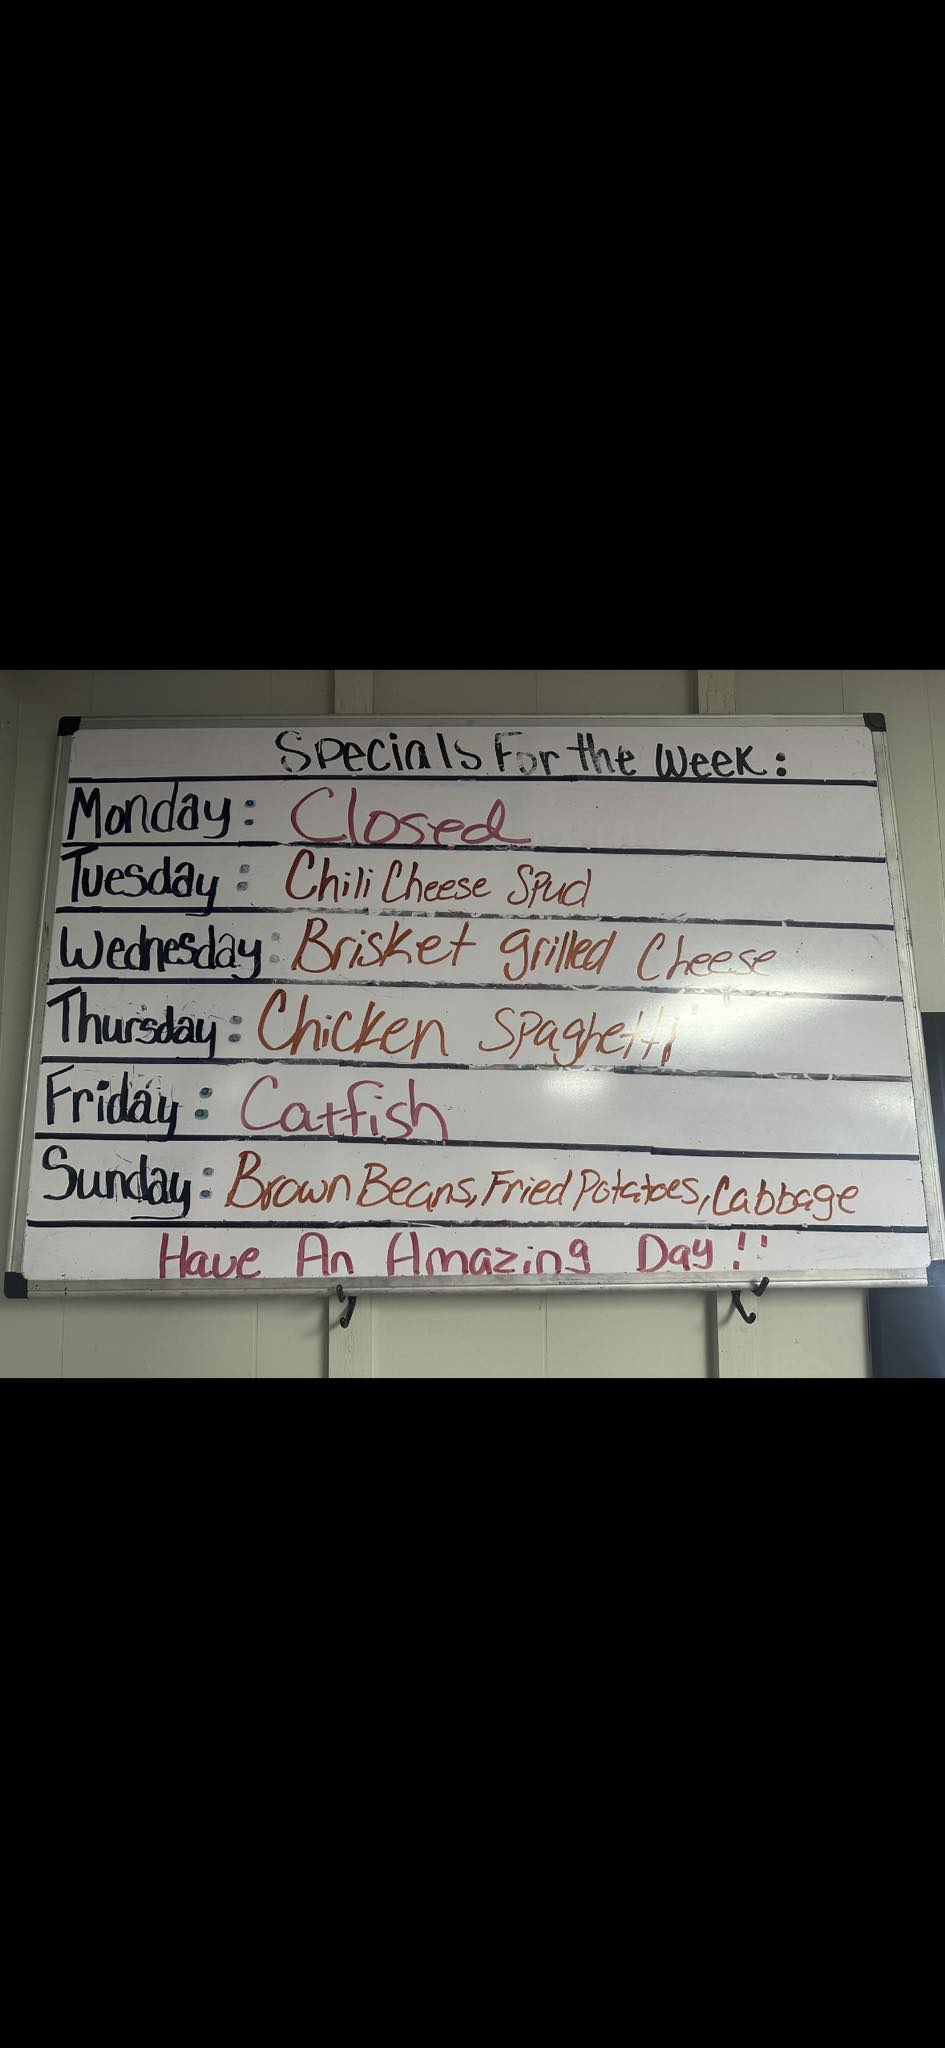 Specials For the Week:
Monday: Closed
Tuesday: Chili Cheese Spud
Wednesday: Brisket grilled Cheese
Thursday: Chicken Spaghetti
Friday: Catfish
Sunday: Brown Beans, Fried Potatoes, Cabbage
Have An Amazing Day!!